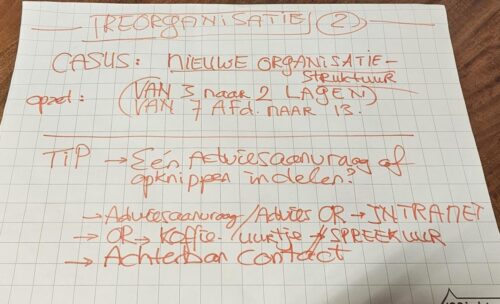 REORGANISATIE 2
CASUS: NIEUWE ORGANISATIE-
STRUKTUUR
opzet: (VAN 3 naar 2 LAGEN)
VAN 7 Afd. NAAR 13.
TIP → Eén Adviesaanvraag of
opknippen in delen?
→ Adviesaanvraag/Advies OR → INTRANET
→ OR → Koffie-uurtje / SPREEKUUR
→ Achterban contact